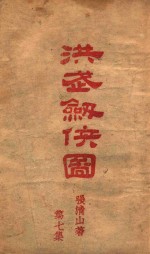 洪武劍俠圖
張濟山著
第七集